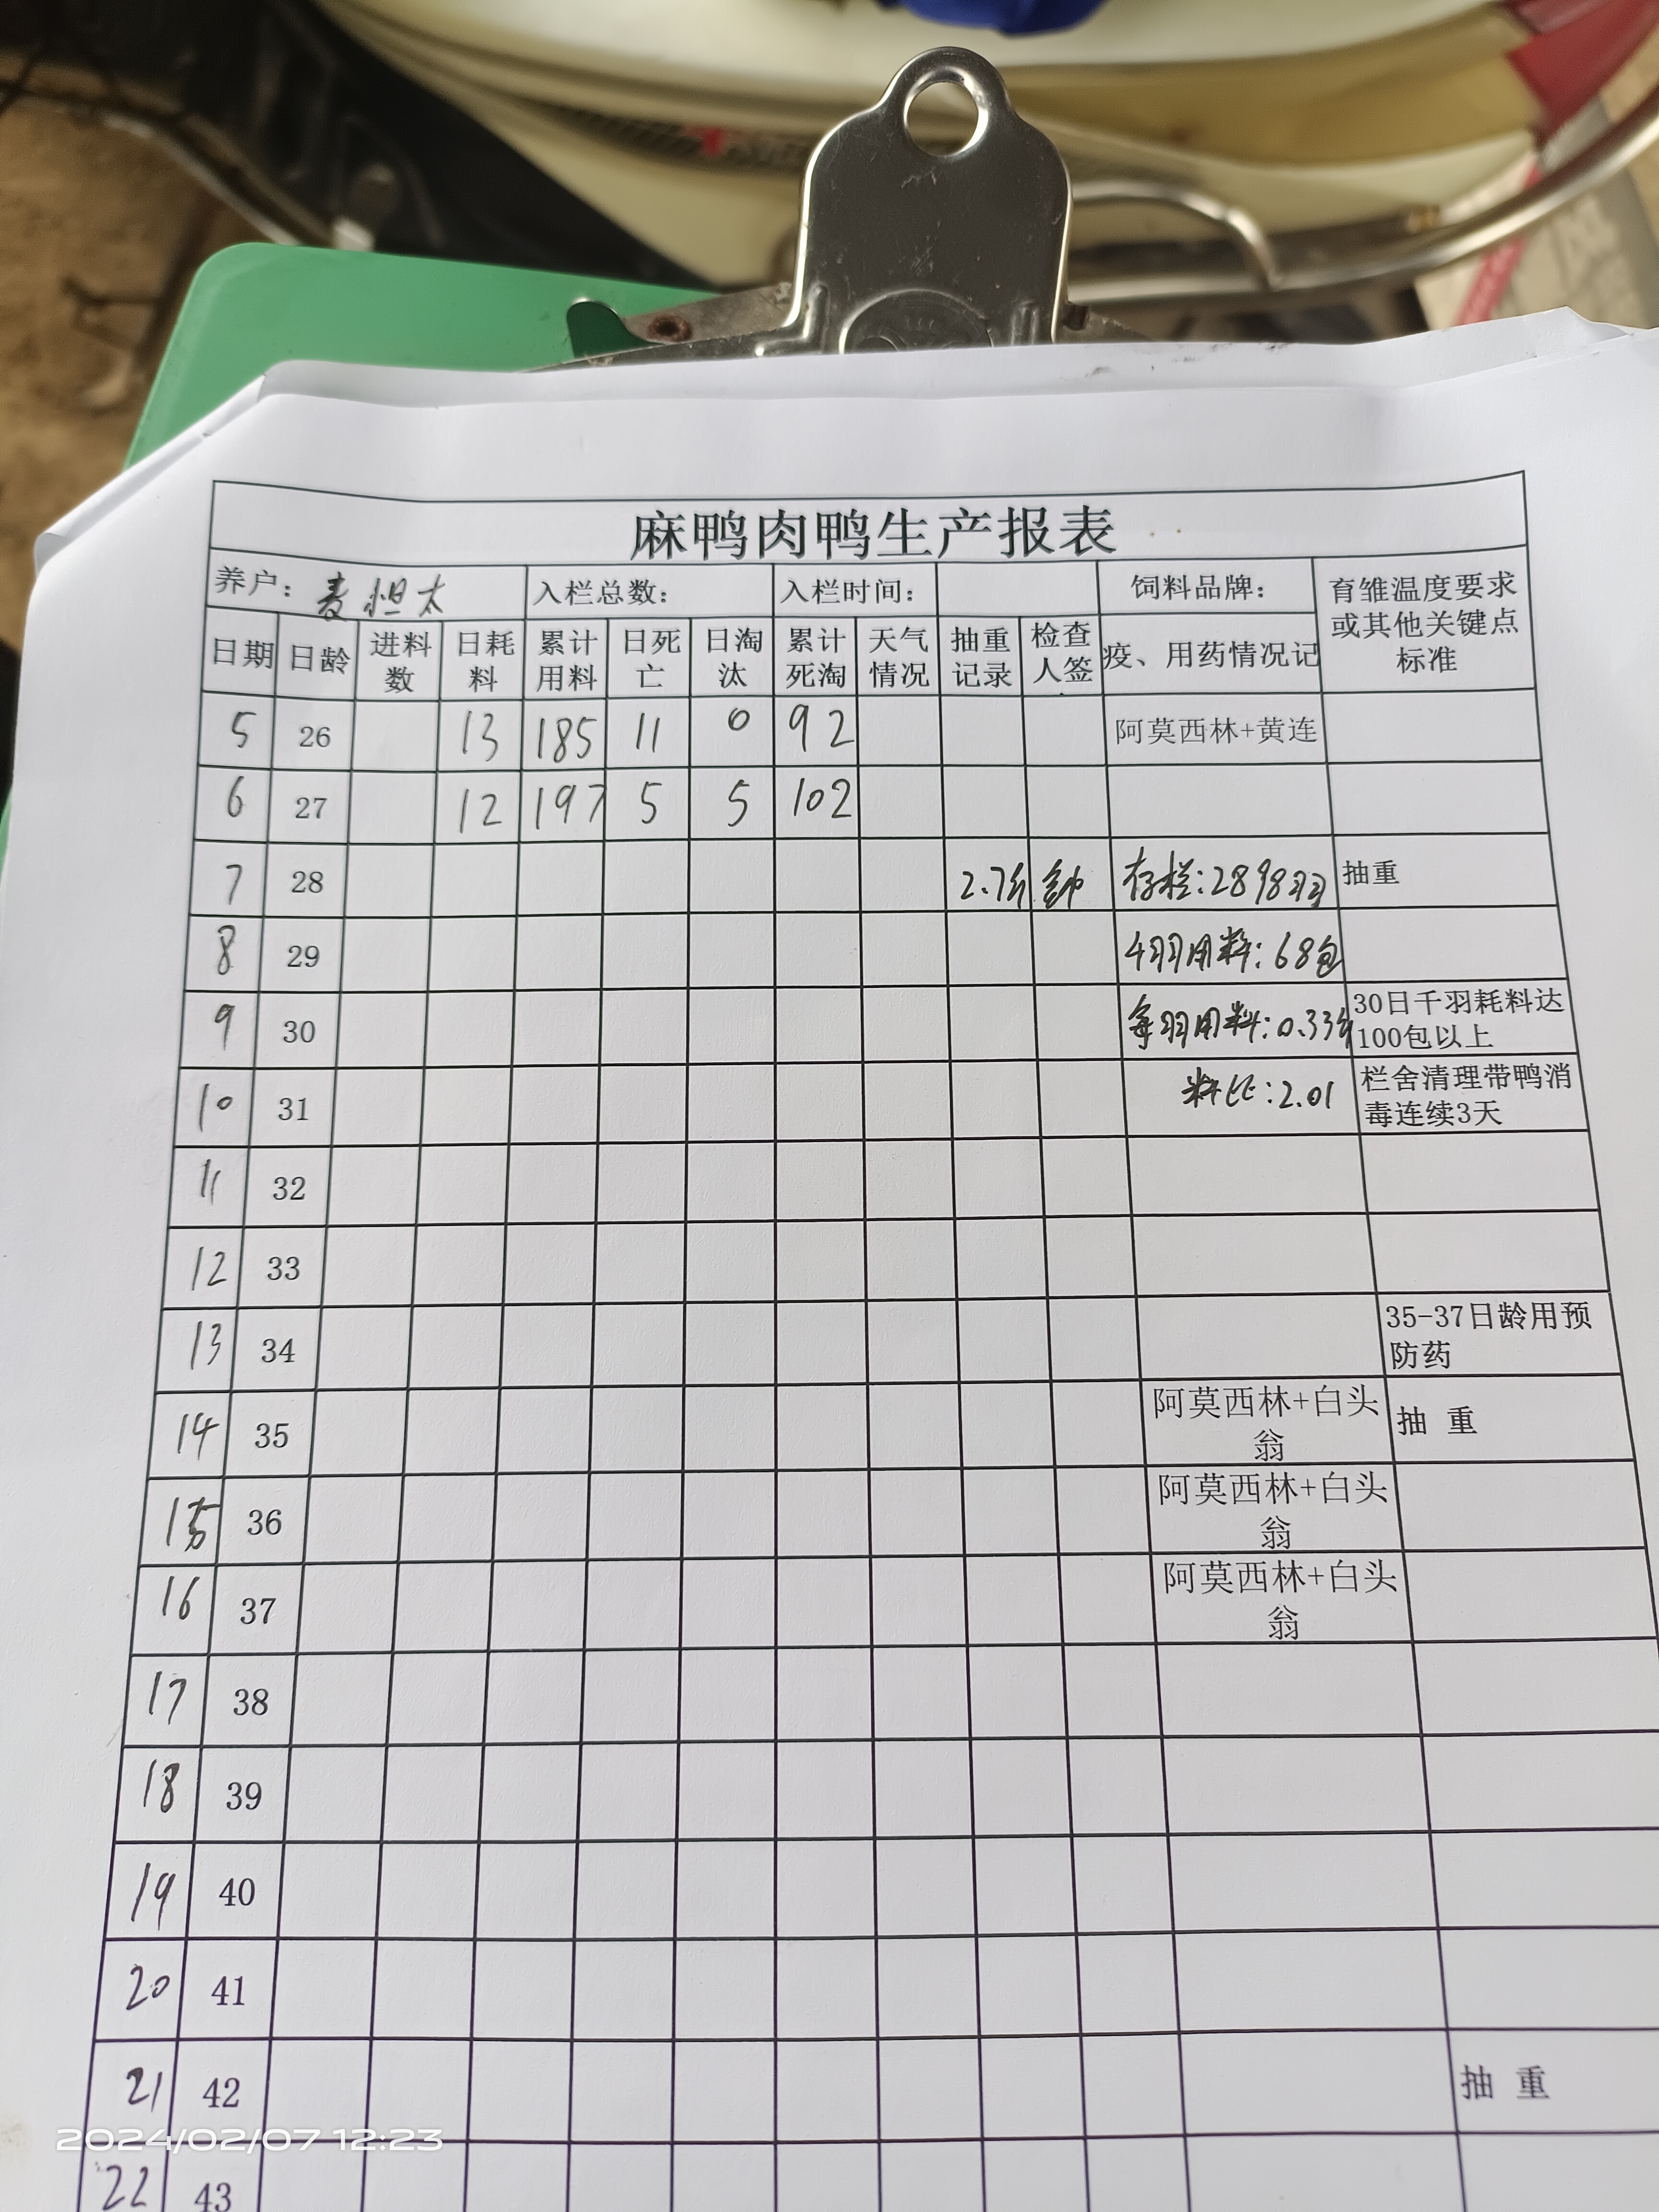 麻鸭肉鸭生产报表
养户: 麦坦太 入栏总数: 入栏时间: 饲料品牌: 育雏温度要求或其他关键点标准
日期 日龄 进料数 日耗料 累计用料 日死亡 日淘汰 累计死淘 天气情况 抽重记录 检查人签 疫、用药情况记
5 26 13 185 11 0 92 阿莫西林+黄连
6 27 12 197 5 5 102
7 28 2.7斤 存栏:2898羽 抽重
8 29 千羽用料:68包
9 30 每羽用料:0.33斤 30日千羽耗料达100包以上
10 31 料比:2.01 栏舍清理带鸭消毒连续3天
11 32
12 33
13 34 35-37日龄用预防药
14 35 阿莫西林+白头翁 抽 重
15 36 阿莫西林+白头翁
16 37 阿莫西林+白头翁
17 38
18 39
19 40
20 41
21 42 抽 重
22 43
2024/02/07 12:23